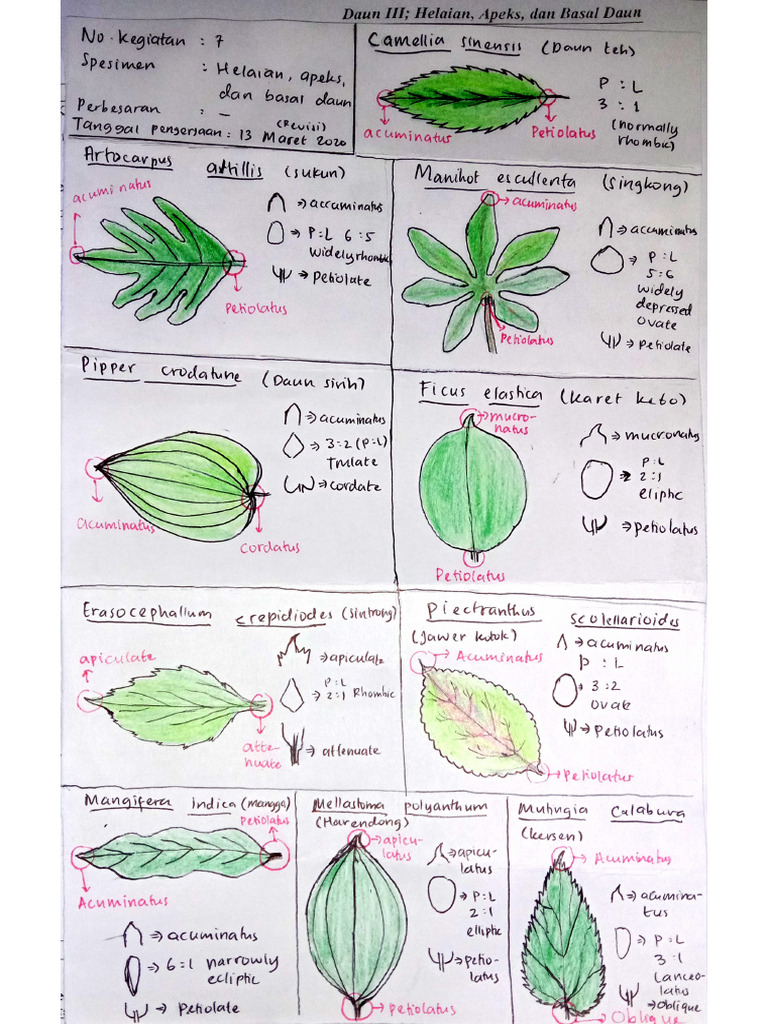 Daun III; Helaian, Apeks, dan Basal Daun
No. Kegiatan : 7
Spesimen : Helaian, apeks, dan basal daun
Perbesaran : –
(Revisi)
Tanggal pengerjaan : 13 Maret 2020
Camellia sinensis (Daun teh)
P : L
3 : 1
(normally
rhombic)
acuminatus
Petiolatus
Artocarpus altillis (sukun)
acuminatus
⇒ accuminatus
⇒ P:L 6:5
widely rhombic
→ Petiolate
Petiolatus
Manihot escullenta (singkong)
→ acuminatus
⇒ accuminatus
⇒ P:L
5:6
widely
depressed
ovate
⇒ petiolate
Petiolatus
Pipper crodatune (Daun sirih)
⇒ acuminatus
⇒ 3:2 (P:L)
Trulate
⇒ cordate
acuminatus
cordatus
Ficus elastica (karet kebo)
→ mucro-
natus
⇒ mucronatus
P:L
⇒ 2:1
eliptic
⇒ petiolatus
Petiolatus
Erasocephallum crepidiodes (sintrong)
apiculate
⇒ apiculate
P:L
⇒ 2:1 Rhombic
⇒ attenuate
atte-
nuate
Plectranthus scolellarioides
(Jawer kotok)
→ Acuminatus
⇒ acuminatus
P : L
⇒ 3:2
ovate
⇒ Petiolatus
→ Petiolatus
Mangifera Indica (mangga)
Petiolatus
Acuminatus
⇒ acuminatus
⇒ 6:1 narrowly
ecliptic
⇒ Petiolate
Mellastoma polyanthum
(Harendong)
→ apicu-
latus
⇒ apicu-
latus
⇒ P:L
2:1
elliptic
⇒ petio-
latus
→ petiolatus
Mutingia Calabura
(kersen)
→ Acuminatus
⇒ acumina-
tus
⇒ P:L
3:1
Lanceo-
latus
⇒ Oblique
→ Oblique